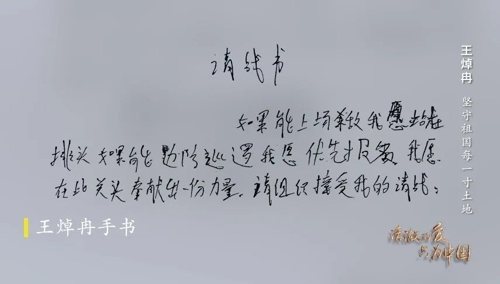 请战书
如果能上场杀敌我愿站在
排头 如果能 边防巡逻我愿 优先报名 我愿
在此关头奉献出一份力量，请组织接受我的请战：
王焯冉手书
王焯冉 坚守祖国每一寸土地
清澈的爱
只为中国